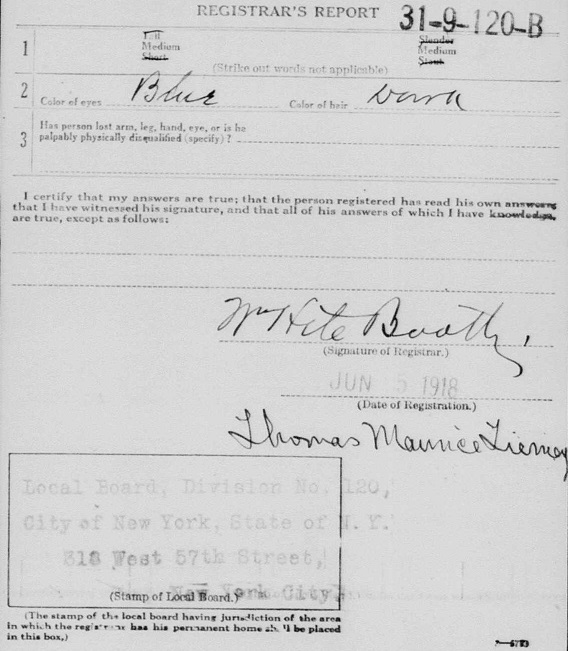 REGISTRAR'S REPORT 31-9-120-B
1 Tall Medium Short Slender Medium Stout
(Strike out words not applicable)
2 Color of eyes Blue Color of hair Dark
3 Has person lost arm, leg, hand, eye, or is he
palpably physically disqualified (specify)?
I certify that my answers are true; that the person registered has read his own answers
that I have witnessed his signature, and that all of his answers of which I have knowledge
are true, except as follows:
Wm Hite Booth,
(Signature of Registrar.)
JUN 5 1918
(Date of Registration.)
Thomas Maurice Tierney
Local Board, Division No. 120,
City of New York, State of N. Y.
318 West 57th Street,
New York City.
(Stamp of Local Board.)
(The stamp of the local board having jurisdiction of the area
in which the registrant has his permanent home shall be placed
in this box.)